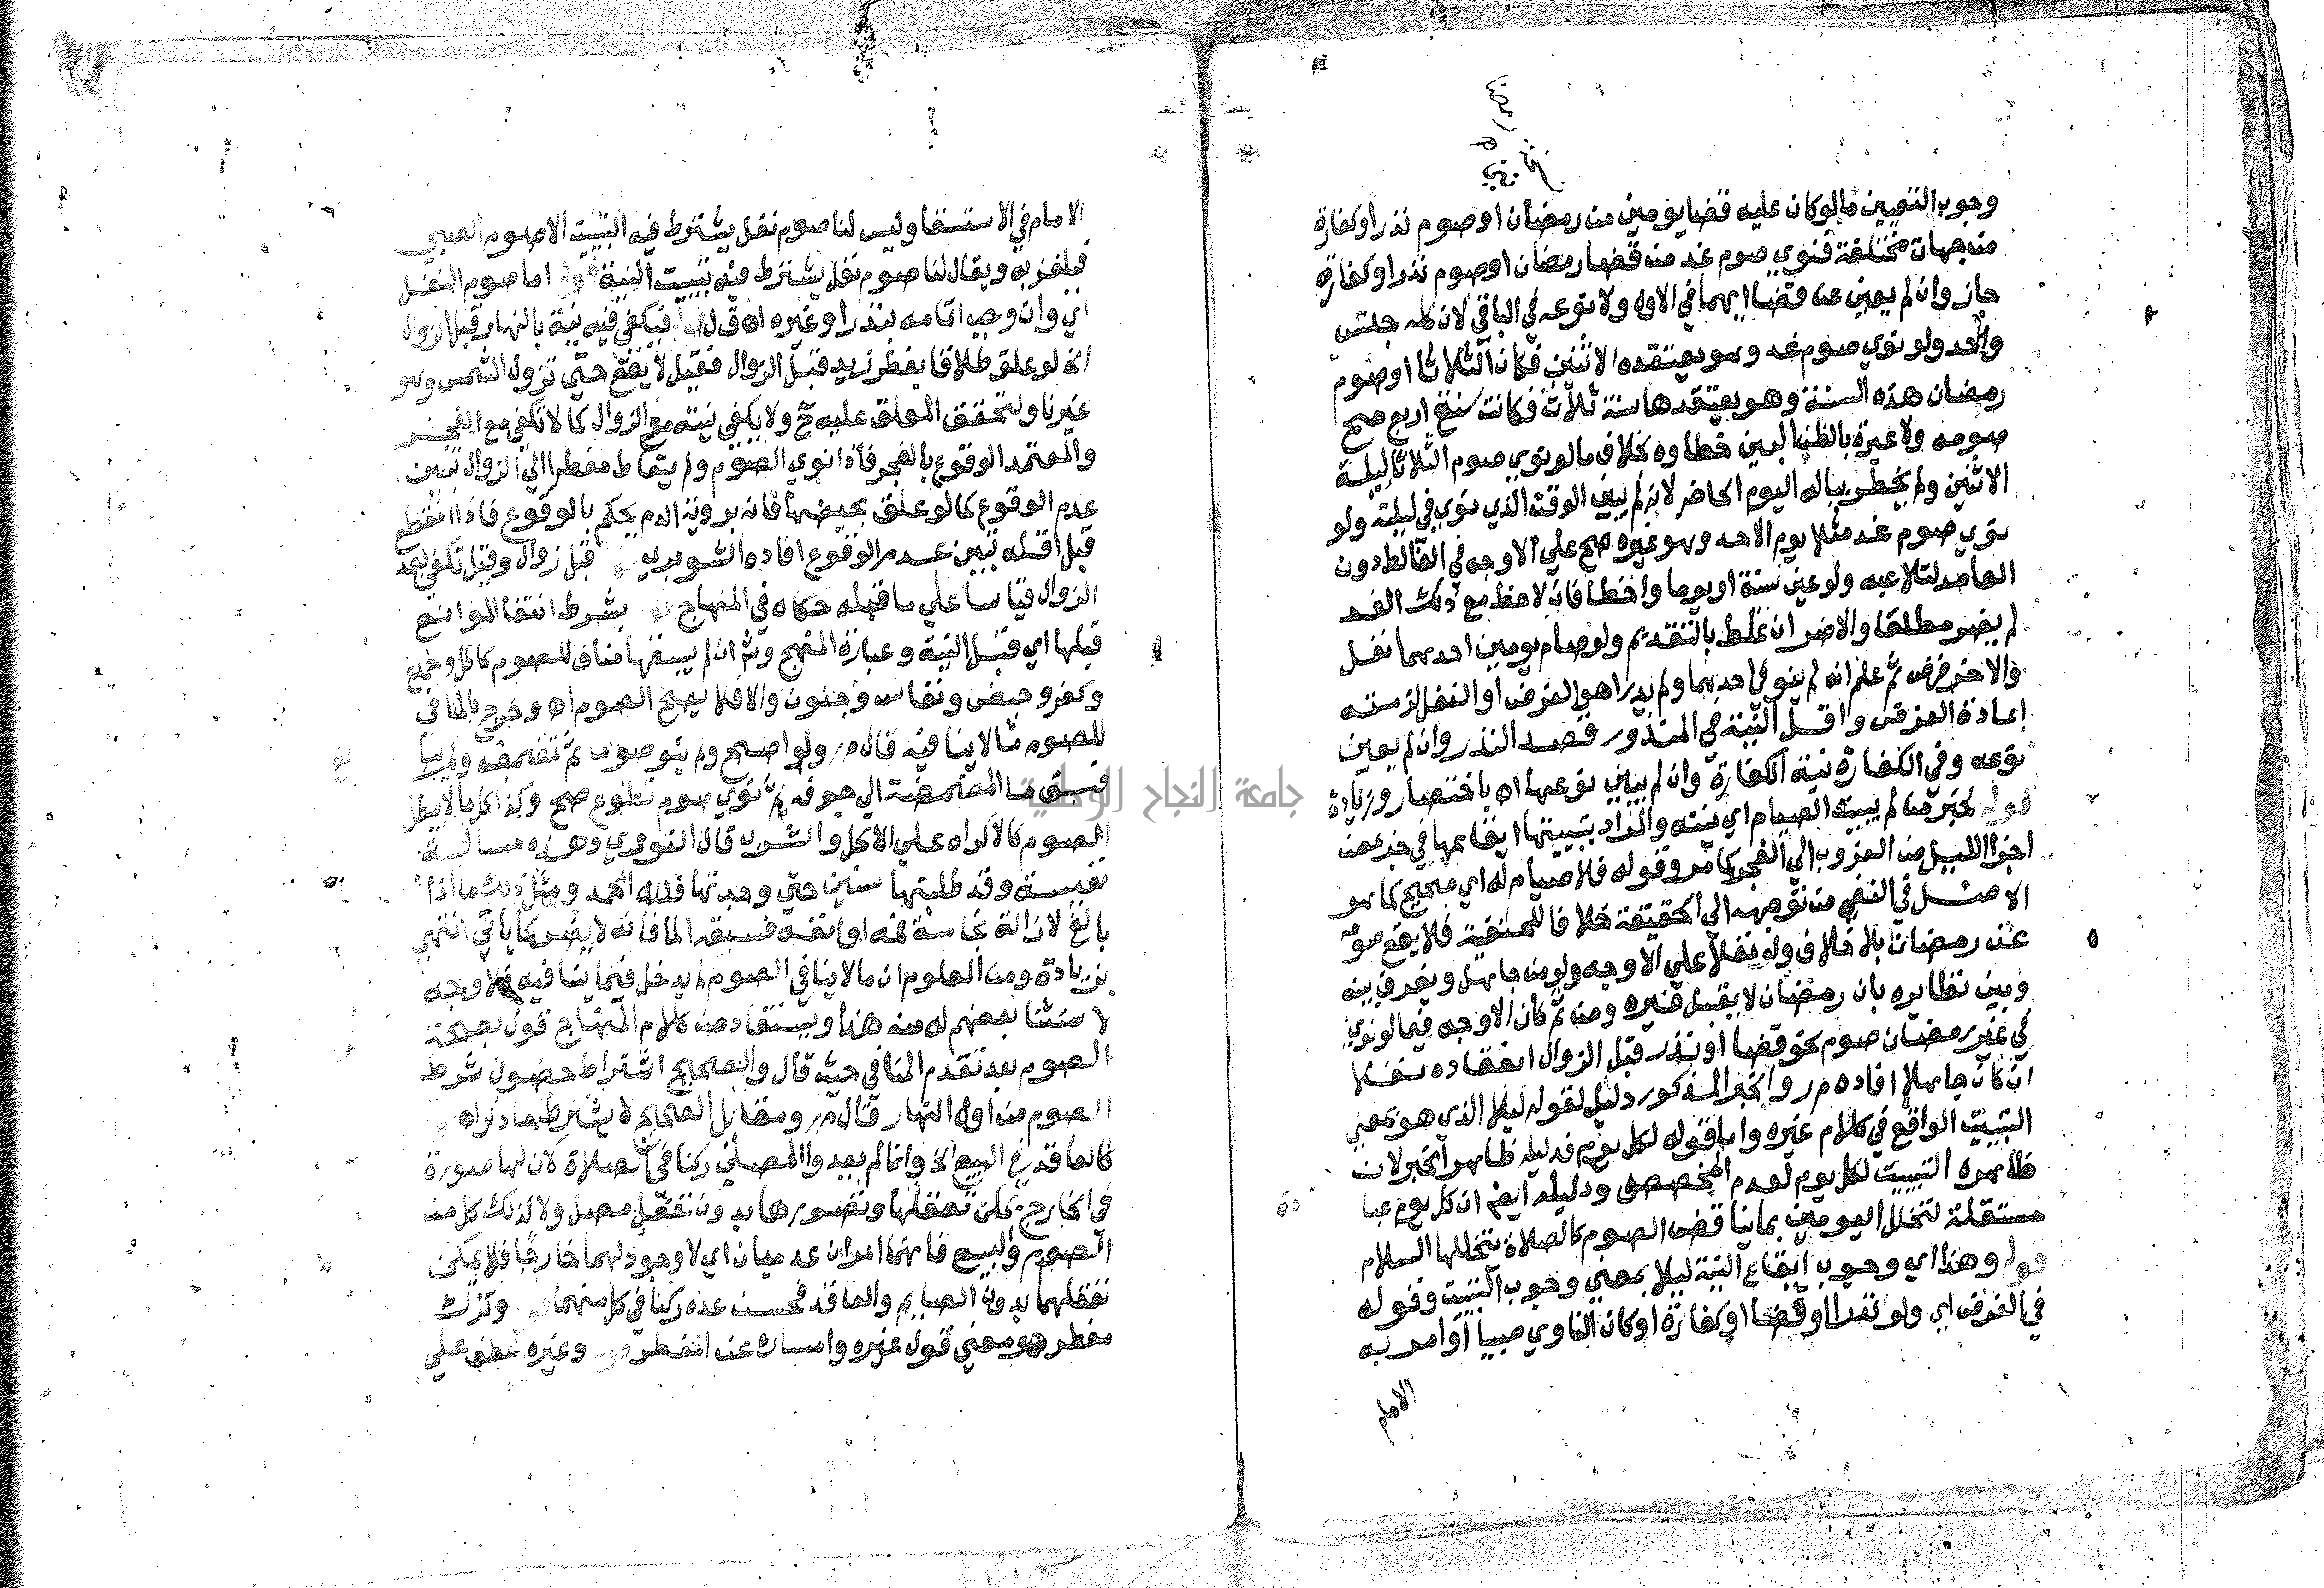 وجوب التعيين مالو كان عليه قضا يومين من رمضان او صوم نذر او كفارة
من جهات مختلفة فنوي صوم غد من قضا رمضان او صوم نذر او كفارة
جاز وان لم يعين عن قضا ايهما في الاول ولا نوعه في الباقي لان كله جنس
واحد ولو نوي صوم غد وهو يعتقده الاثنين فكان الثلاثا او صوم
رمضان هذه السنة وهو يعتقدها سنة ثلاث فكانت سنة اربع صح
صومه ولا عبرة بالظن البين خطاوه بخلاف مالو نوي صوم الثلاثا ليلة
الاثنين ولم يخطر بباله اليوم الحاضر لانه لم يعين الوقت الذي نوي في ليلته ولو
نوي صوم غد مثلا يوم الاحد وهو غيره صح علي الاوجه في الغالط دون
العامد لتلاعبه ولو عين سنة او يوما واخطا فان لاحظ مع ذلك الغد
لم يضر مطلقا والا ضر ان غلط بالتقديم ولو صام يومين احدهما نفل
والاخر فرض ثم علم انه لم ينو في احدهما ولم يدر اهو الفرض او النفل لزمته
اعادة الفرض واقل النية في المنذور قصد النذر وان لم يعين
نوعه وفي الكفارة نية الكفارة وان لم يبين نوعها اه باختصار وزيادة
قوله لخبر من لم يبيت الصيام اي نيته والمراد بتبييتها ايقاعها في جزء من
اجزا الليل من الغروب الي الفجر كما مر وقوله فلا صيام له اي صحيح كما هو
الاصل في النفي من توجهه الي الحقيقة خلافا للحنفية فلا يقع صومه
عن رمضان بلا خلاف ولا نفلا علي الاوجه ولو من جاهل ويفرق بينه
وبين نظايره بان رمضان لا يقبل غيره ومن ثم كان الاوجه فيما لو نوي
في غير رمضان صوم نحو قضا او نذر قبل الزوال انعقاده نفلا
ان كان جاهلا افاده م ر والخبر المذكور دليل لقوله ليلا الذي هو بمعني
التبييت الواقع في كلام غيره واما قوله لكل يوم فدليله ظاهر الخبر لان
ظاهره التبييت لكل يوم لعدم المخصص ودليله ايضا ان كل يوم عبا
مستقلة لتخلل اليومين بما يناقض الصوم كالصلاة يتخللها السلام
قوله وهذا اي وجوب ايقاع النية ليلا بمعني وجوب التبييت وقوله
في الفرض اي ولو نذرا او قضا او كفارة او كان الناوي صبيا او امر به
الامام
الامام في الاستسقا وليس لنا صوم نفل يشترط فيه التبييت الا صوم الصبي
فيلغز به ويقال لنا صوم نفل يشترط فيه تبييت النية قوله اما صوم النفل
اي وان وجب اتمامه بنذر او غيره اه ق ل قوله فيكفي فيه نية بالنهار قبل الزوال
الخ لو علق طلاقا بفطر زيد قبل الزوال فقيل لا يقع حتي تزول الشمس وهو
غير ناو لتحقق المعلق عليه ح ولا يكفي نيته مع الزوال كما لا تكفي مع الفجر
والمعتمد الوقوع بالفجر فاذا نوي الصوم ولم يتعاط مفطرا الي الزوال تبين
عدم الوقوع كما لو علق بحيضها فانه برؤية الدم يحكم بالوقوع فاذا انقطع
قبل اقله تبين عدم الوقوع افاده الشوبري قبل زوال وقيل تكفي بعد
الزوال قياسا علي ما قبله حكاه في المنهاج قوله بشرط انتفا الموانع
قبلها اي قبل النية وعبارة المنهج وش ان لم يسبقها مناف للصوم كاكل وجماع
وكفر وحيض ونفاس وجنون والا فلا يصح الصوم اه وخرج بالمنافي
للصوم ما لا ينافيه قال م ر ولو اصبح ولم ينو صوما ثم تمضمض ولم يبا
فسبق ما المضمضة الي جوفه ثم نوي صوم تطوع صح وكذا كل ما لا يبطل
الصوم كالاكراه علي الاكل والشرب قال النووي وهذه مسالة
نفيسة وقد طلبتها سنين حتي وجدتها فلله الحمد ومثل ذلك ما اذا
بالغ لازالة نجاسة فمه او انفه فسبقه الما فانه لا يضر كما ياتي انتهي
بزيادة ومن المعلوم ان ما لا ينافي الصوم لم يدخل فيما ينافيه فلا وجه
لاستثنا بعضهم له من هذا ويستفاد من كلام المنهاج قول بصحة
الصوم بعد تقدم المنافي حيث قال والصحيح اشتراط حصول شرط
الصوم من اول النهار قال م ر ومقابل الصحيح لا يشترط ما ذكر اه
كالعاقد في البيع الخ وانما لم يعدوا المصلي ركنا في الصلاة لان لها صورة
في الخارج يمكن تعقلها وتصورها بدون تعقل مصل ولا كذلك كل من
الصوم والبيع فانهما امران عدميان اي لا وجود لهما خارجا فلا يمكن
تعقلهما بدون الصايم والعاقد فحسن عده ركنا في كل منهما وترك
مفطر هو معني قول غيره وامساك عن المفطر قوله وغيره عطف علي